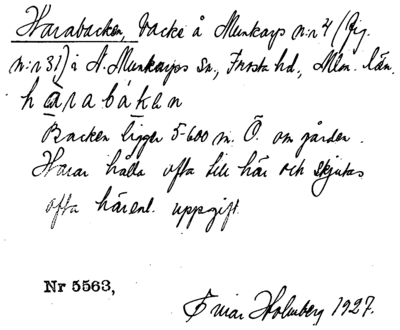 Harabacken, backe å Munkarp n:r 4 (Fig.
n:r 31) i A. Munkarps sn., Frosta hd., Mlm. län.
harabákен
Backen ligger 5-600 m. Ö. om gården.
Harar hålla ofta till här och skjutas
ofta här enl. uppgift.
Nr 5563,
Einar Holmberg 1927.